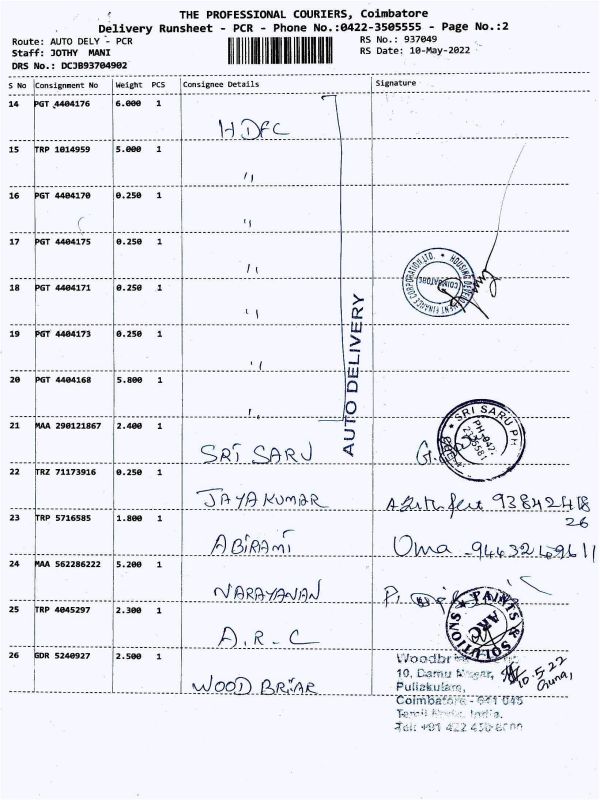 THE PROFESSIONAL COURIERS, Coimbatore
Delivery Runsheet - PCR - Phone No.:0422-3505555 - Page No.:2
Route: AUTO DELY - PCR RS No.: 937049
Staff: JOTHY MANI RS Date: 10-May-2022
DRS No.: DCJB93704902
S No Consignment No Weight PCS Consignee Details Signature
14 PGT 4404176 6.000 1 HDFC
15 TRP 1014959 5.000 1 "
16 PGT 4404170 0.250 1 "
17 PGT 4404175 0.250 1 "
18 PGT 4404171 0.250 1 "
19 PGT 4404173 0.250 1 "
20 PGT 4404168 5.800 1 "
AUTO DELIVERY
HOUSING DEVELOPMENT FINANCE CORPORATION LTD.
COIMBATORE
21 MAA 290121867 2.400 1 SRI SARU
SRI SARU PH
22 TRZ 71173916 0.250 1 JAYAKUMAR 93842418
26
23 TRP 5716585 1.800 1 ABIRAMI Uma
24 MAA 562286222 5.200 1 NARAYANAN
25 TRP 4045297 2.300 1 A.R.C
PAINTS & SOLUTIONS
ARC
26 GDR 5240927 2.500 1 WOOD BRIAR
10, Damu Nagar,
Puliakulam,
Coimbatore - 641 045
Tamil Nadu, India.
10.5.22
Guna,